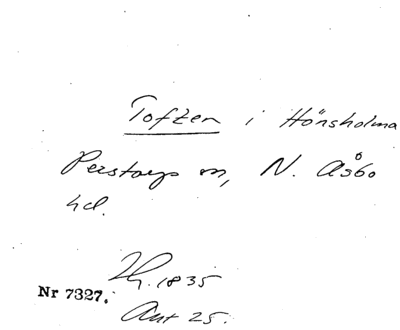 Toften i Hönsholma
Perstorps sn, N. Åsbo
hd.
Lh. 1835
Nr 7327.
Ant 25.